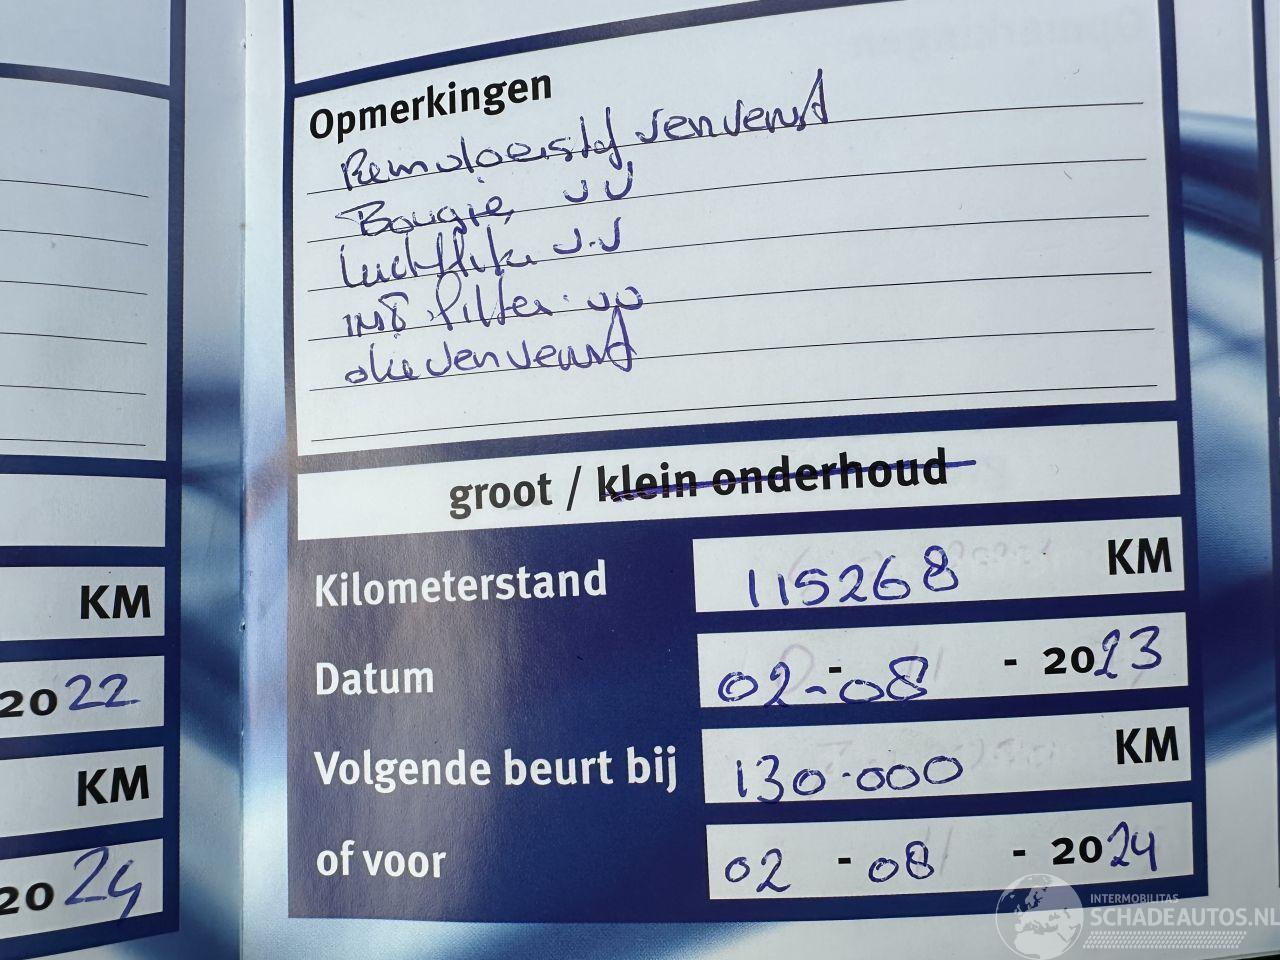 Opmerkingen
Remvloeistof ververst
Bougie, v v
Luchtfilte v.v
int. filter. vv
olie ververst
groot / klein onderhoud
Kilometerstand 115268 KM
Datum 02 - 08 - 2023
Volgende beurt bij 130.000 KM
of voor 02 - 08 - 2024
KM
2022
KM
2024
INTERMOBILITAS
SCHADEAUTOS.NL